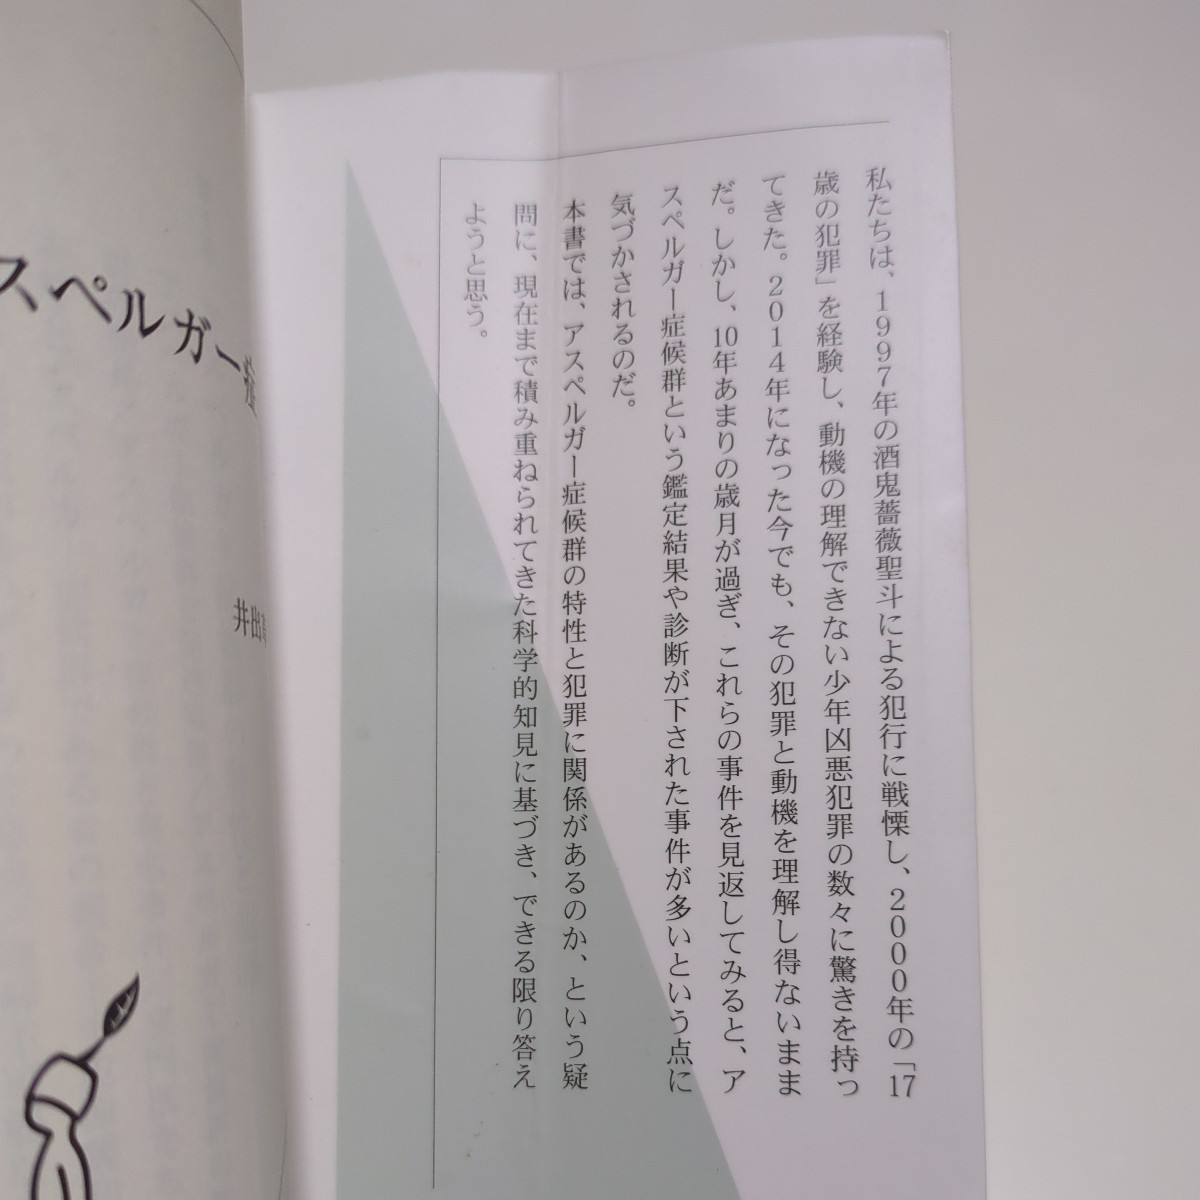 私たちは、1997年の酒鬼薔薇聖斗による犯行に戦慄し、2000年の「17
歳の犯罪」を経験し、動機の理解できない少年凶悪犯罪の数々に驚きを持っ
てきた。2014年になった今でも、その犯罪と動機を理解し得ないまま
だ。しかし、10年あまりの歳月が過ぎ、これらの事件を見返してみると、ア
スペルガー症候群という鑑定結果や診断が下された事件が多いという点に
気づかされるのだ。
本書では、アスペルガー症候群の特性と犯罪に関係があるのか、という疑
問に、現在まで積み重ねられてきた科学的知見に基づき、できる限り答え
ようと思う。
スペルガー症
井出